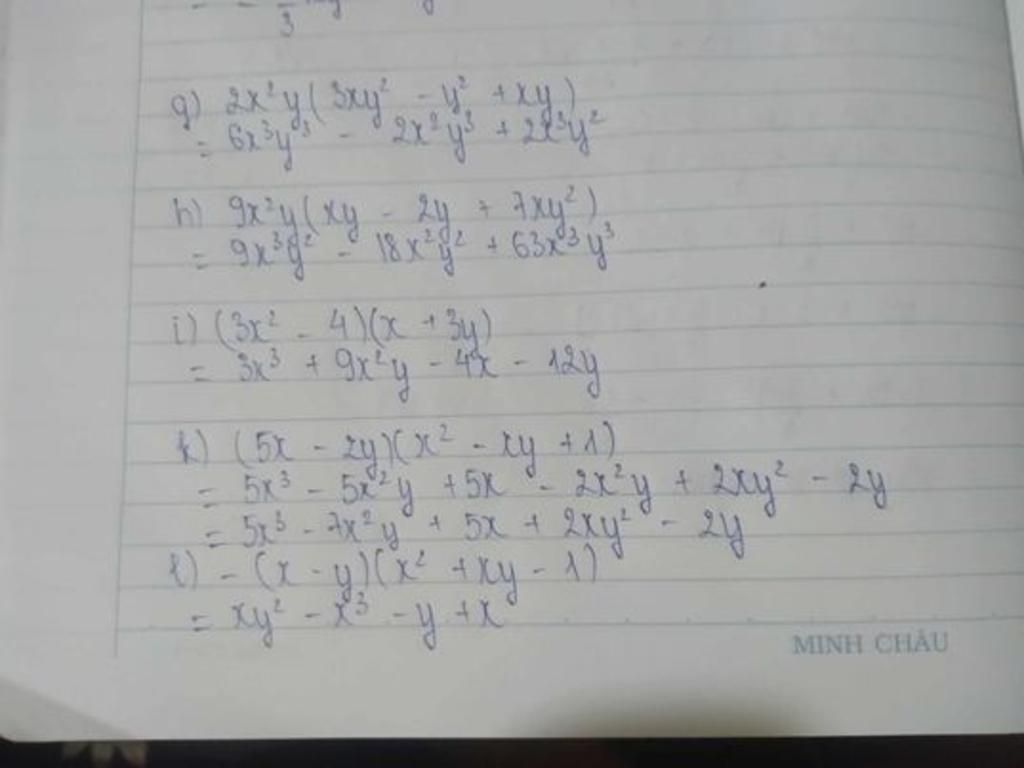 g) 2x²y(3xy² - y² + xy)
= 6x³y³ - 2x²y³ + 2x³y²
h) 9x²y(xy - 2y + 7xy²)
= 9x³y² - 18x²y² + 63x³y³
i) (3x² - 4)(x + 3y)
= 3x³ + 9x²y - 4x - 12y
k) (5x - 2y)(x² - xy + 1)
= 5x³ - 5x²y + 5x - 2x²y + 2xy² - 2y
= 5x³ - 7x²y + 5x + 2xy² - 2y
l) - (x - y)(x² + xy - 1)
= xy² - x³ - y + x
MINH CHÂU